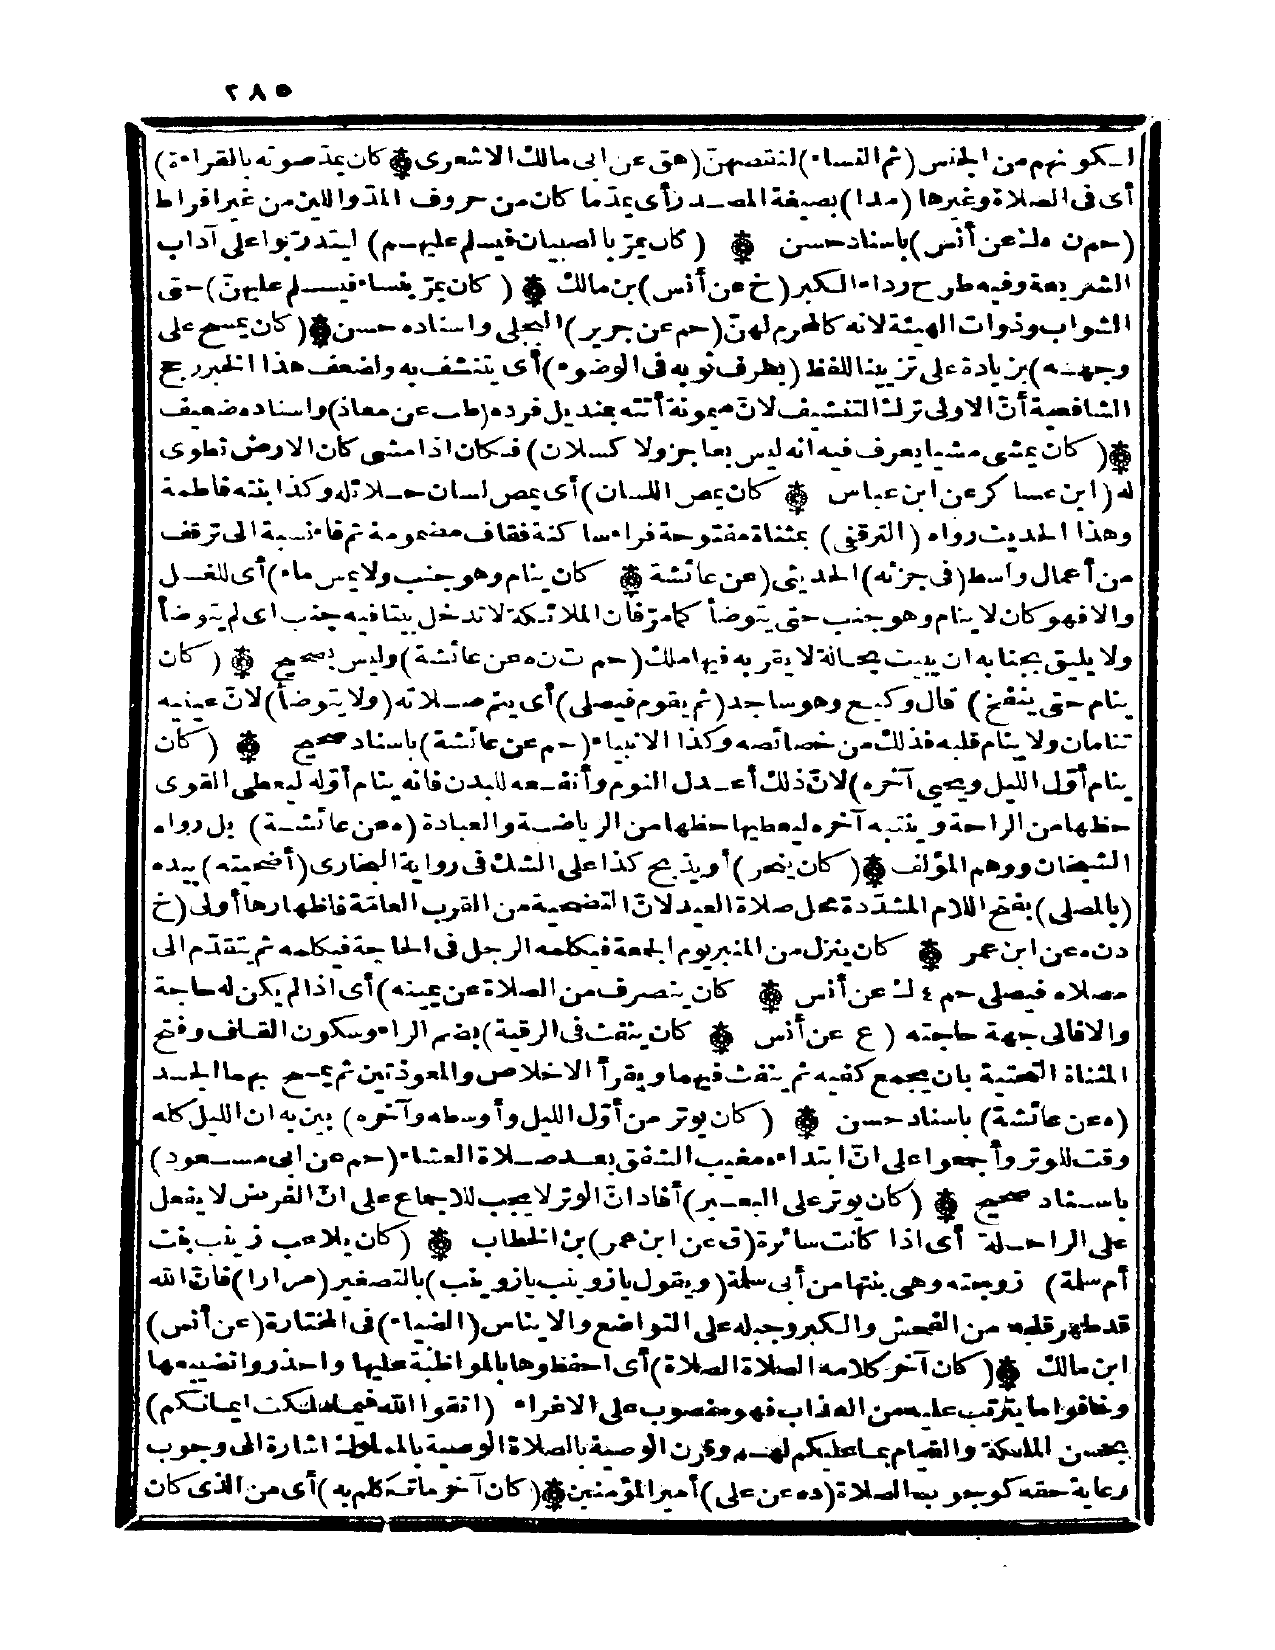 ٢٨٥
لكونهم من الجنس (ثم النساء) لنقصهنّ (هق عن ابى مالك الاشعرى ۞ كان يمدّ صوته بالقراءة)
أى فى الصلاة وغيرها (مدا) بصيغة المصدر أى يمد ما كان من حروف المدّ واللين من غير افراط
(حم ن ه ك عن أنس) باسناد حسن ۞ (كان يمرّ بالصبيان فيسلم عليهم) ليتدربوا على آداب
الشريعة وفيه طرح رداء الكبر (خ عن أنس) بن مالك ۞ (كان يمرّ بنساء فيسلم عليهنّ) حتى
الشواب وذوات الهيئة لانه كالمحرم لهنّ (حم عن جرير) البجلى واسناده حسن ۞ (كان يمسح على
وجهه) بزيادة على تزيينا للفظ (بطرف ثوبه فى الوضوء) أى يتنشف به ولضعف هذا الخبر رجح
الشافعية أنّ الاولى ترك التنشيف لانّ ميمونة أتته بمنديل فرده (طب عن معاذ) واسناده ضعيف
۞ (كان يمشى مشيا يعرف فيه انه ليس بعاجز ولا كسلان) فكان اذا مشى كان الارض تطوى
له (ابن عساكر عن ابن عباس ۞ كان يمص اللسان) أى يمص لسان حلائله وكذا ابنته فاطمة
وهذا الحديث رواه (الترقفى) بمثناة مفتوحة فراء ساكنة فقاف مضمومة ثم فاء نسبة الى ترقف
من أعمال واسط (فى جزئه) الحديثى (عن عائشة ۞ كان ينام وهو جنب ولا يمس ماء) أى للغسل
والا فهو كان لا ينام وهو جنب حتى يتوضأ كما مرّ فان الملائكة لا تدخل بيتا فيه جنب اى لم يتوضأ
ولا يليق بجنابه ان يبيت بحالة لا يقربه فيها ملك (حم ت ن ه عن عائشة) وليس بصحيح ۞ (كان
ينام حتى ينفخ) قال وكيع وهو ساجد (ثم يقوم فيصلى) أى يتم صلاته (ولا يتوضأ) لانّ عينيه
تنامان ولا ينام قلبه فذلك من خصائصه وكذا الانبياء (حم عن عائشة) باسناد صحيح ۞ (كان
ينام أوّل الليل ويحيى آخره) لانّ ذلك أعدل النوم وأنفعه للبدن فانه ينام أوله ليعطى القوى
حظها من الراحة وينتبه آخره ليعطيها حظها من الرياضة والعبادة (ه عن عائشة) بل رواه
الشيخان ووهم المؤلف ۞ (كان ينحر) أو يذبح كذا على الشك فى رواية البخارى (أضحيته) بيده
(بالمصلى) بفتح اللام المشدّدة محل صلاة العيد لانّ التضحية من القرب العامّة فاظهارها أولى (خ
د ن ه عن ابن عمر ۞ كان ينزل من المنبر يوم الجمعة فيكلمه الرجل فى الحاجة فيكلمه ثم يتقدّم الى
مصلاه فيصلى حم ٤ ك عن أنس ۞ كان ينصرف من الصلاة عن يمينه) أى اذا لم يكن له حاجة
والا فالى جهة حاجته (ع عن أنس ۞ كان ينفث فى الرقية) بضم الراء وسكون القاف وفتح
المثناة التحتية بان يجمع كفيه ثم ينفث فيهما ويقرأ الاخلاص والمعوذتين ثم يمسح بهما الجسد
(ه عن عائشة) باسناد حسن ۞ (كان يوتر من أوّل الليل وأوسطه وآخره) بين به ان الليل كله
وقت للوتر وأجمعوا على انّ ابتداءه مغيب الشفق بعد صلاة العشاء (حم عن ابى مسعود)
باسناد صحيح ۞ (كان يوتر على البعير) أفاد انّ الوتر لا يجب للاجماع على انّ الفرض لا يفعل
على الراحلة أى اذا كانت سائرة (ق عن ابن عمر) بن الخطاب ۞ (كان يلاعب زينب بنت
أم سلمة) زوجته وهى بنتها من أبى سلمة (ويقول يا زوينب يا زوينب) بالتصغير (مرارا) فانّ الله
قد طهر قلبه من الفحش والكبر وجبله على التواضع والايناس (الضياء) فى المختارة (عن أنس)
ابن مالك ۞ (كان آخر كلامه الصلاة الصلاة) أى احفظوها بالمواظبة عليها واحذروا تضييعها
وخافوا ما يترتب عليه من العذاب فهو منصوب على الاغراء (اتقوا الله فيما ملكت ايمانكم)
بحسن الملكة والقيام بما عليكم لهم وقرن الوصية بالصلاة الوصية بالمملوك اشارة الى وجوب
رعاية حقه كوجوب الصلاة (د ه عن على) أمير المؤمنين ۞ (كان آخر ما تكلم به) أى من الذى كان